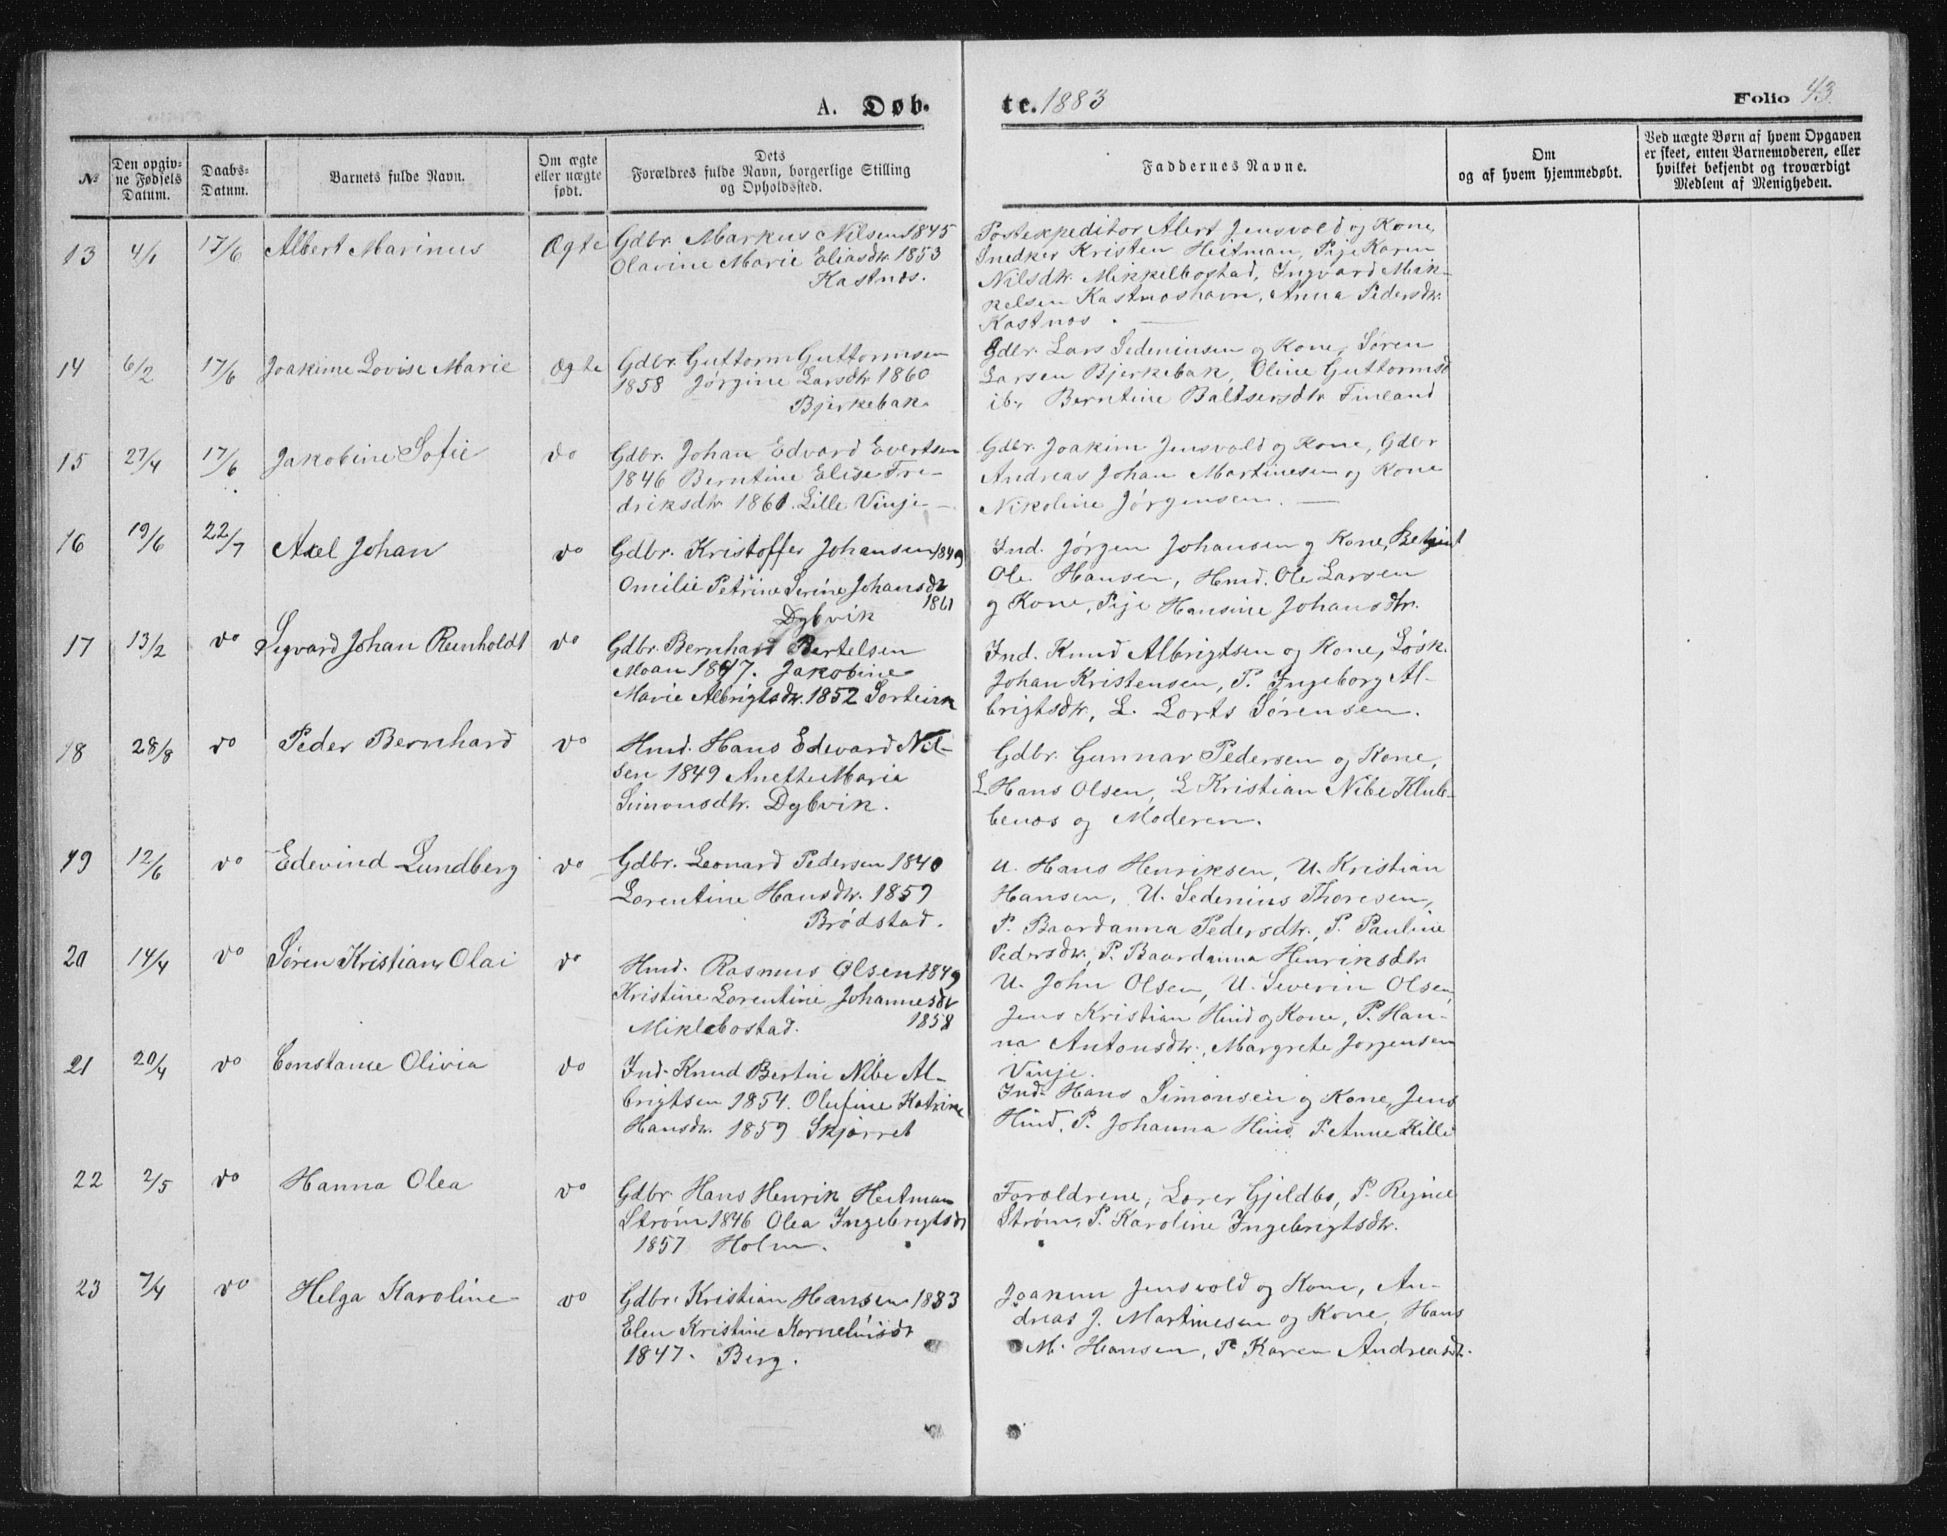 A. Døb-
te. 1883
Folio 43.
№
Den opgiv-
ne Fødsels
Datum.
Daabs-
Datum.
Barnets fulde Navn.
Om ægte
eller uægte
født.
Dets
Forældres fulde Navn, borgerlige Stilling
og Opholdssted.
Faddernes Navne.
Om
og af hvem hjemmedøbt.
Ved uægte Børn af hvem Opgaven
er skeet, enten Barnemoderen, eller
hvilket bekjendt og troværdigt
Medlem af Menigheden.
13 4/1 17/6 Albert Marinus Ægte
Gdbr. Markus Nilsen 1845
Olavine Marie Eliasdtr. 1853
Kastnæs.
Postexpeditør Alert Jensvold og Kone,
Snedker Kristen Heitman, Pije Karen
Nilsdtr. Mikkelbostad, Ingvard Mik-
kelsen Kastnæshavn, Anna Pedersdtr.
Kastnæs.
14 6/2 17/6 Joakime Lovise Marie Ægte
Gdbr. Guttorm Guttormsen
1858 Jørgine Larsdtr 1860
Bjerkebak.
Gdbr. Lars Sedeniusen og Kone, Søren
Larsen Bjerkebak, Oline Guttormsd
ib., Berntine Baltsersdtr Finland
15 27/4 17/6 Jakobine Sofie do
Gdbr. Johan Edvard Evertsen
1846 Berntine Elise Fre-
driksdtr 1861. Lille Vinje
Gdbr. Joakim Jensvold og Kone, Gdbr
Andreas Johan Martinesen og Kone
Nikoline Jørgensen.
16 19/6 22/7 Axel Johan do
Gdbr. Kristoffer Johansen 1849
Omilie Petrine Serine Johansdtr
1861
Dybvik
Ind. Jørgen Johansen og Kone, Betjent
Ole Hansen, Hmd. Ole Larsen
og Kone, Pije Hansine Johansdtr.
17 13/2 do Segvard Johan Reinholdt do
Gdbr. Bernhard Bertelsen
Moan 1847. Jakobine
Marie Albrigtsdtr. 1852 Sorteisen
Ind. Knud Albrigtsen og Kone, Løsk.
Johan Kristensen, P. Ingeborg Al-
brigtsdtr, L. Lorts Sørensen.
18 28/8 do Peder Bernhard do
Hmd. Hans Edevard Nil-
sen 1849 Anette Maria
Simonsdtr. Dybvik.
Gdbr. Gunnar Pedersen og Kone,
L Hans Olsen, L Kristian Nibe Klub-
benæs og Moderen.
19 12/6 do Edevind Lundberg do
Gdbr. Leonard Pedersen 1840
Lorentine Hansdtr. 1859
Brødstad.
U. Hans Henriksen, U. Kristian
Hansen, U. Sedenius Thoresen,
P. Baardanna Pedersdtr., P. Pauline
Pedersdtr, P. Baardanna Henriksdtr
20 14/4 do Søren Kristian Olai do
Hmd. Rasmus Olsen 1849
Kristine Lorentine Johannesdtr
1858
Miklebostad.
U. John Olsen, U. Severin Olsen,
Jens Kristian Hind og Kone, P. Han-
na Antonsdtr., Margrete Jørgensen
Vinje.
21 20/4 do Constanse Olivia do
Ind. Knud Bertin Nibe Al-
brigtsen 1854. Olufine Katrine
Hansdtr. 1859 Skjærret
Ind. Hans Simonsen og Kone, Jens
Hind, P. Johanna Hind, P. Anne Kille
22 2/5 do Hanna Olea do
Gdbr. Hans Henrik Heitman
Strøm 1846 Olea Ingebrigtsdtr
1857 Holm.
Foræeldrene, Lærer Gjeldbo, P. Regine
Strøm, P. Karoline Ingebrigtsdtr.
23 7/4 do Helga Karoline do
Gdbr. Kristian Hansen 1833
Elen Kristine Korneliusdtr
1847. Berg.
Joakim Jensvold og Kone, An-
dreas J. Martinesen og Kone, Hans
M. Hansen, P. Karen Andreasdtr.